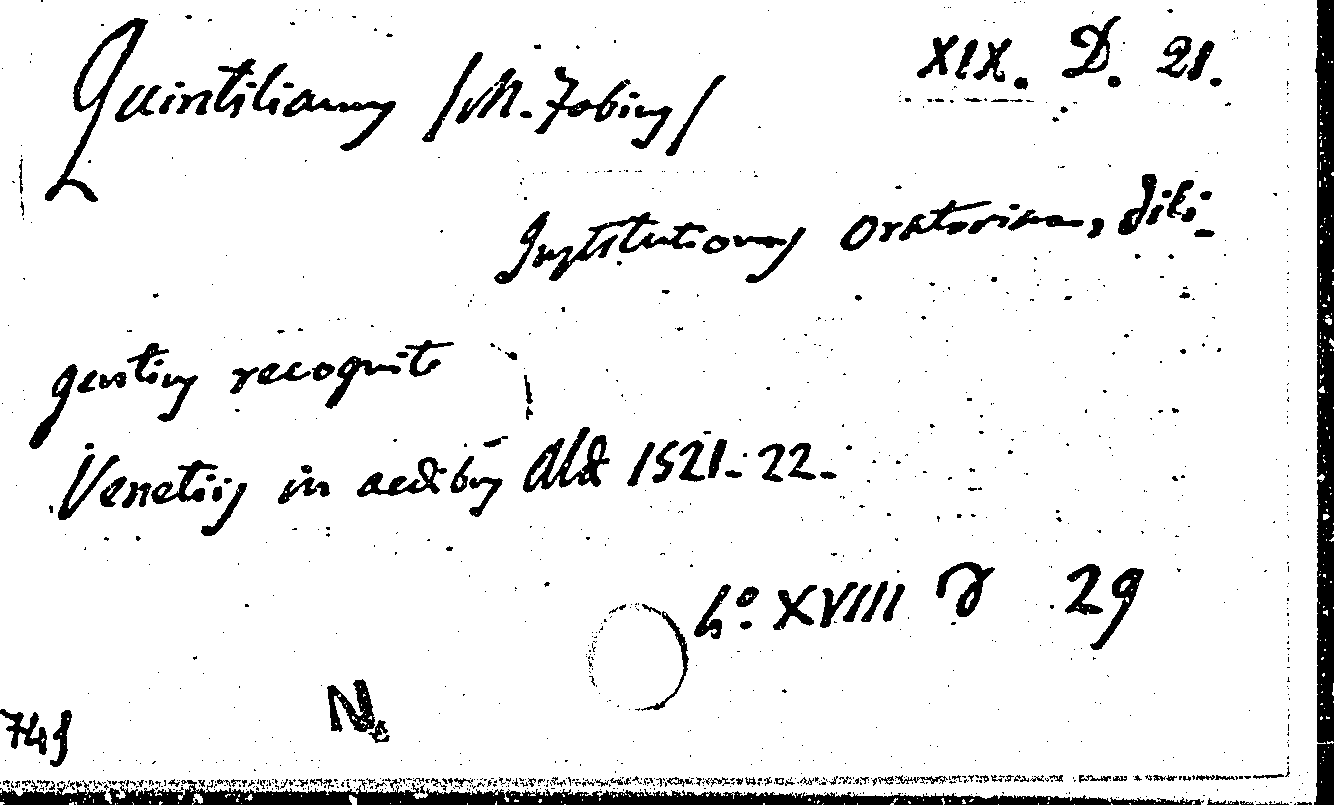 XIX. D. 21.
Quintilianus /M. Fabius/
Institutiones oratoriae, dili-
gentius recognite
Venetiis in aedibus Aldi 1521-22.
4° XVIII 29
N